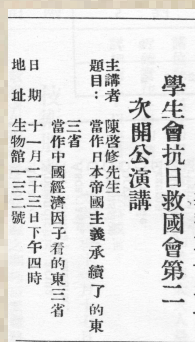 學生會抗日救國會第二
次開公演講
主講者 陳啓修先生
題目： 當作日本帝國主義承續了的東
三省
當作中國經濟因子看的東三省
日 期 十一月二十三日下午四時
地 址 生物館一三二號